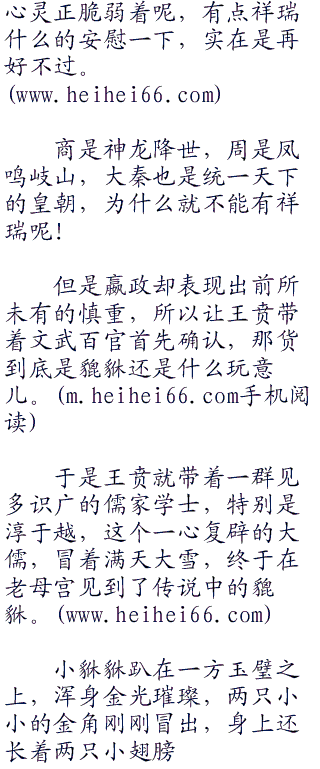 心灵正脆弱着呢，有点祥瑞
什么的安慰一下，实在是再
好不过。
(www.heihei66.com)
商是神龙降世，周是凤
鸣岐山，大秦也是统一天下
的皇朝，为什么就不能有祥
瑞呢！
但是嬴政却表现出前所
未有的慎重，所以让王贲带
着文武百官首先确认，那货
到底是貔貅还是什么玩意
儿。(m.heihei66.com手机阅
读)
于是王贲就带着一群见
多识广的儒家学士，特别是
淳于越，这个一心复辟的大
儒，冒着满天大雪，终于在
老母宫见到了传说中的貔
貅。(www.heihei66.com)
小貅貅趴在一方玉璧之
上，浑身金光璀璨，两只小
小的金角刚刚冒出，身上还
长着两只小翅膀